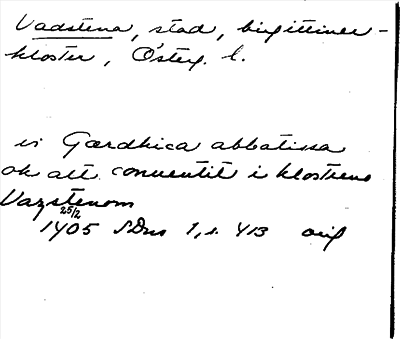 Vadstena, stad, birgittiner-
kloster, Österg. l.
wi Gærdhica abbatissa
ok alt conuentit i klostreno
Vazstenom
25/2
1405 SDns 1, s. 413 orig